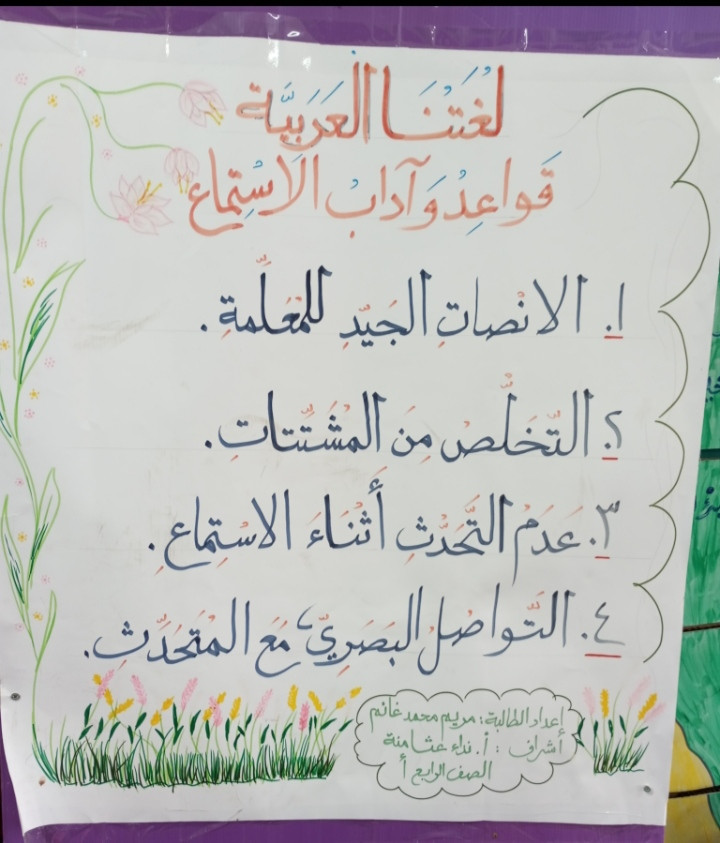 لُغَتُنَا العَرَبِيَّة
قَواعِدُ وَآدابُ الاسْتِماع
١. الانْصاتِ الجَيّدِ للمُعَلِّمةِ.
٢. التّخَلُّصُ مِنَ المُشَتِّتاتِ.
٣. عَدَمُ التَّحَدُّثِ أَثْنَاءَ الاسْتِماعِ.
٤. التَّواصُلُ البَصَرِيّ مَعَ المتَحَدِّثِ.
إعداد الطالبة: مريم محمد غانم
أشراف : أ. نداء عثامنة
الصف الرابع أ